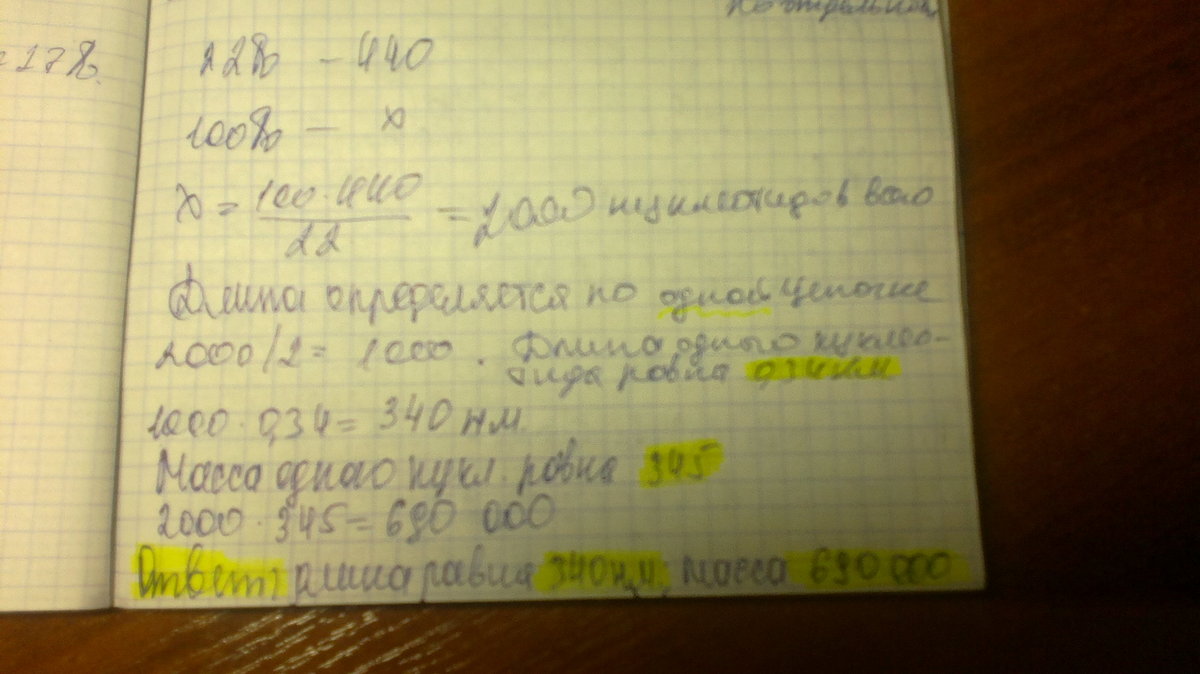 = 17%.
22% - 440
100% - x
x = 100·440 / 22 = 2000 нуклеотидов всего
Длина определяется по одной цепочке
2000/2 = 1000. Длина одного нуклео-
тида равна 0,34 нм
1000 · 0,34 = 340 нм.
Масса одного нукл. равна 345
2000 · 345 = 690 000
Ответ: длина равна 340нм; масса 690 000